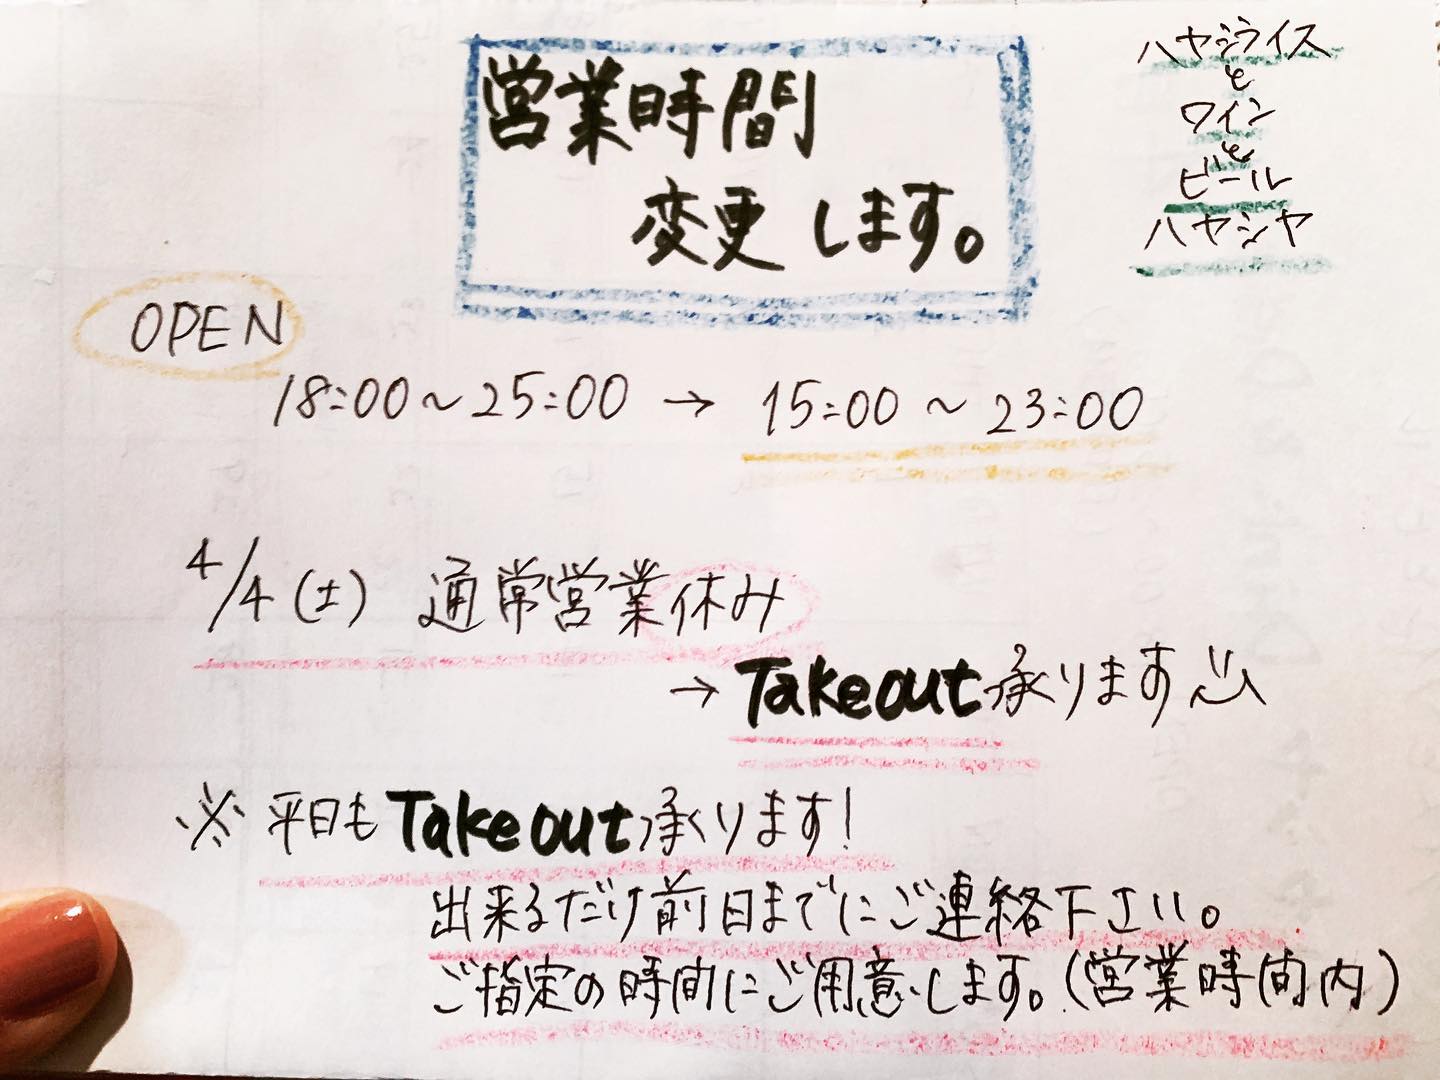 営業時間
変更します。
ハヤシライス
と
ワイン
と
ビール
ハヤシヤ
OPEN
18:00～25:00 → 15:00～23:00
4/4(土) 通常営業休み
→ Takeout承ります
※ 平日もTakeout承ります!
出来るだけ前日までにご連絡下さい。
ご指定の時間にご用意します。(営業時間内)